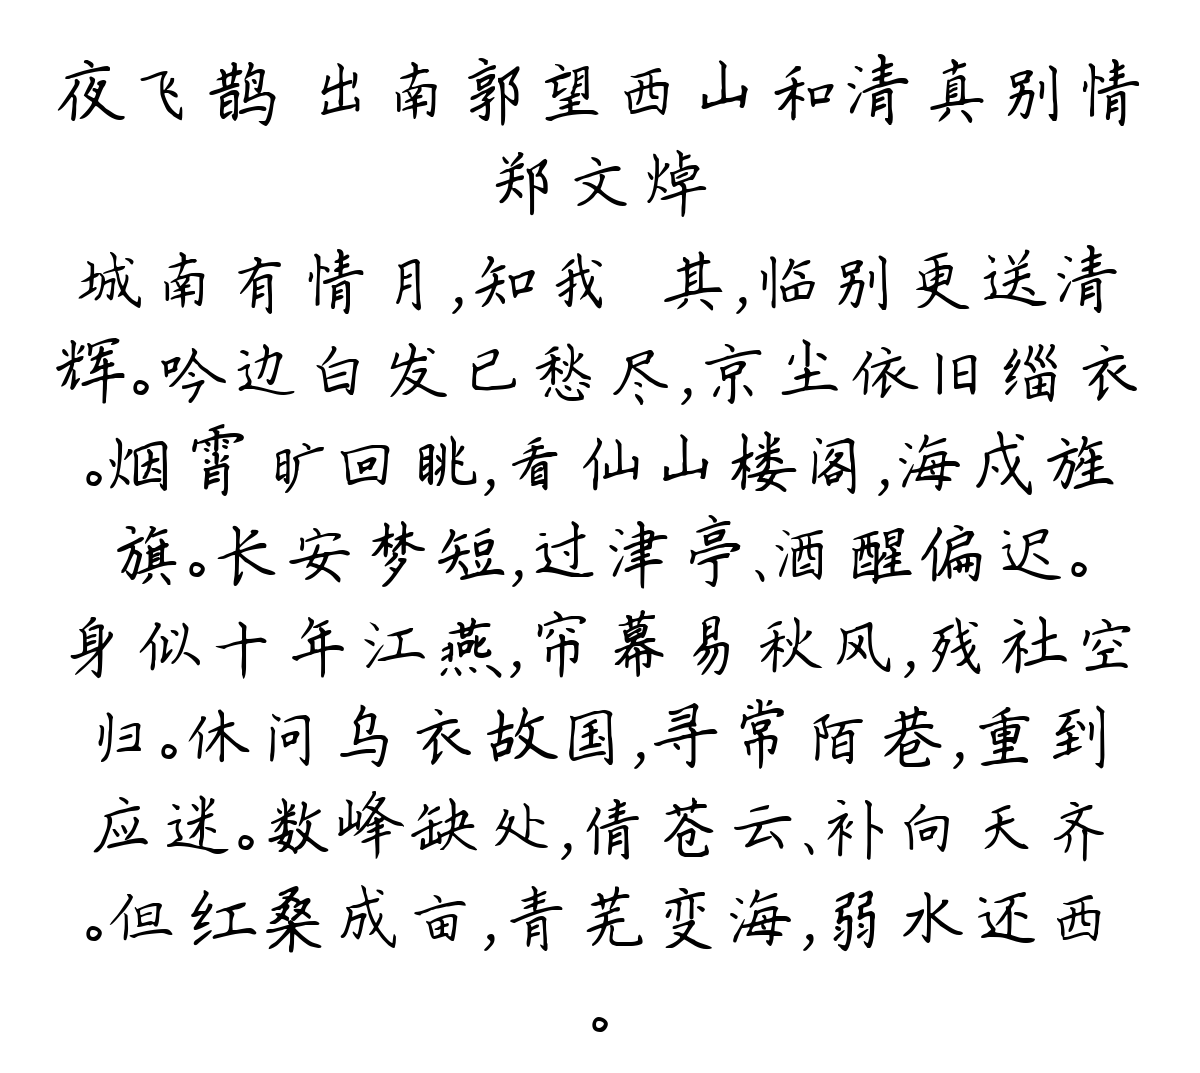 夜飞鹊 出南郭望西山和清真别情
郑文焯
城南有情月,知我 其,临别更送清
辉。吟边白发已愁尽,京尘依旧缁衣
。烟霄旷回眺,看仙山楼阁,海戍旌
旗。长安梦短,过津亭、酒醒偏迟。
身似十年江燕,帘幕易秋风,残社空
归。休问乌衣故国,寻常陌巷,重到
应迷。数峰缺处,倩苍云、补向天齐
。但红桑成亩,青芜变海,弱水还西
。